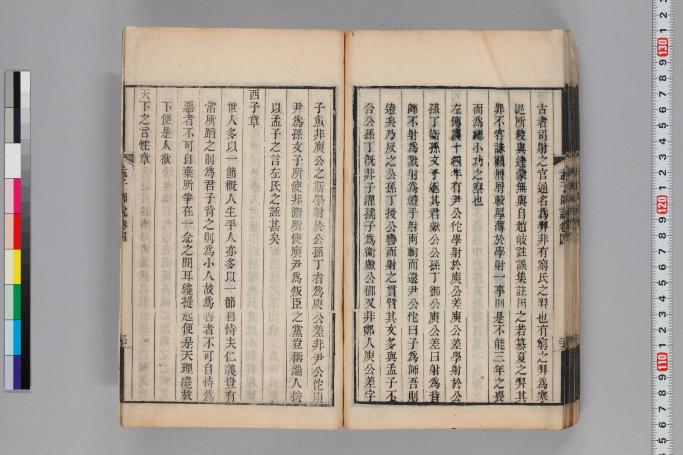 古者司射之官通名為羿非有窮氏之羿也有窮之羿為寒
浞所殺與逢蒙無與自趙岐註誤集註因之若篡夏之羿其
罪不容誅顧屑屑較厚薄於學射一事則是不能三年之喪
而為緦小功之察也
左傳襄十四年有尹公佗學射於庾公差庾公差學射於公
孫丁衛孫文子逐其君獻公公孫丁御公庾公差曰射為背
師不射為戮射為禮乎射兩軥而還尹公佗曰子為師吾則
遠矣乃反之公孫丁授公轡而射之貫臂其文多與孟子不
合公孫丁旣非子濯孺子為衛獻公御又非鄭人庾公差字
子魚非庾公之斯學射於公孫丁者為庾公差非尹公佗庾
尹為孫文子所使非衛所使庾尹為叛臣之黨豈稱端人按
以孟子之言左氏之誣甚矣
西子章
世人多以一節概人生平人亦多以一節自恃夫仁義豈有
常所蹈之則為君子背之則為小人故為善者不可自恃為
惡者不可自棄所爭在一念之間耳纔提起便是天理纔放
下便是人欲
天下之言性章
孟子師說卷四